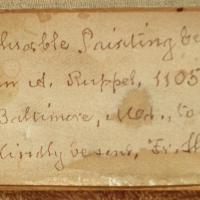 luable Painting be
n A. Ruppel, 1105
Baltimore, Md., to
Kindly be sent,